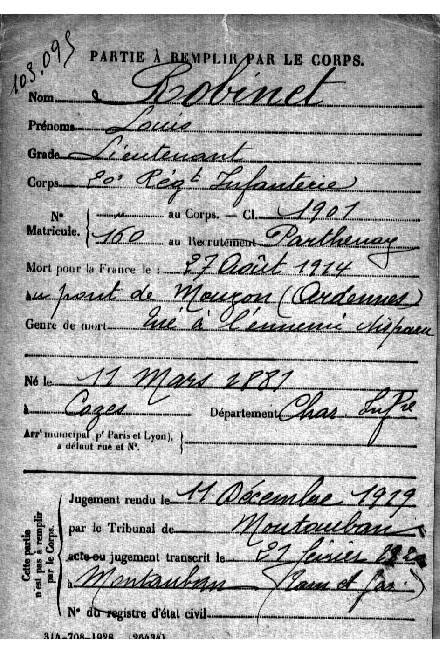 103.095
PARTIE À REMPLIR PAR LE CORPS.
Nom Robinet
Prénoms Louis
Grade Lieutenant
Corps 20e Régt Infanterie
N° Matricule. { " au Corps. — Cl. 1901
160 au Recrutement Parthenay
Mort pour la France le : 27 Août 1914
à au pont de Mouzon (Ardennes)
Genre de mort Tué à l'ennemi Disparu
Né le 11 Mars 1881
à Cozes Département Char. Infre
Arrt municipal (pr Paris et Lyon), à défaut rue et N°. }
Cette partie n'est pas à remplir par le Corps.
Jugement rendu le 11 Décembre 1919
par le Tribunal de Montauban
acte ou jugement transcrit le 21 février
à Montauban (Tarn et Gar.)
N° du registre d'état civil